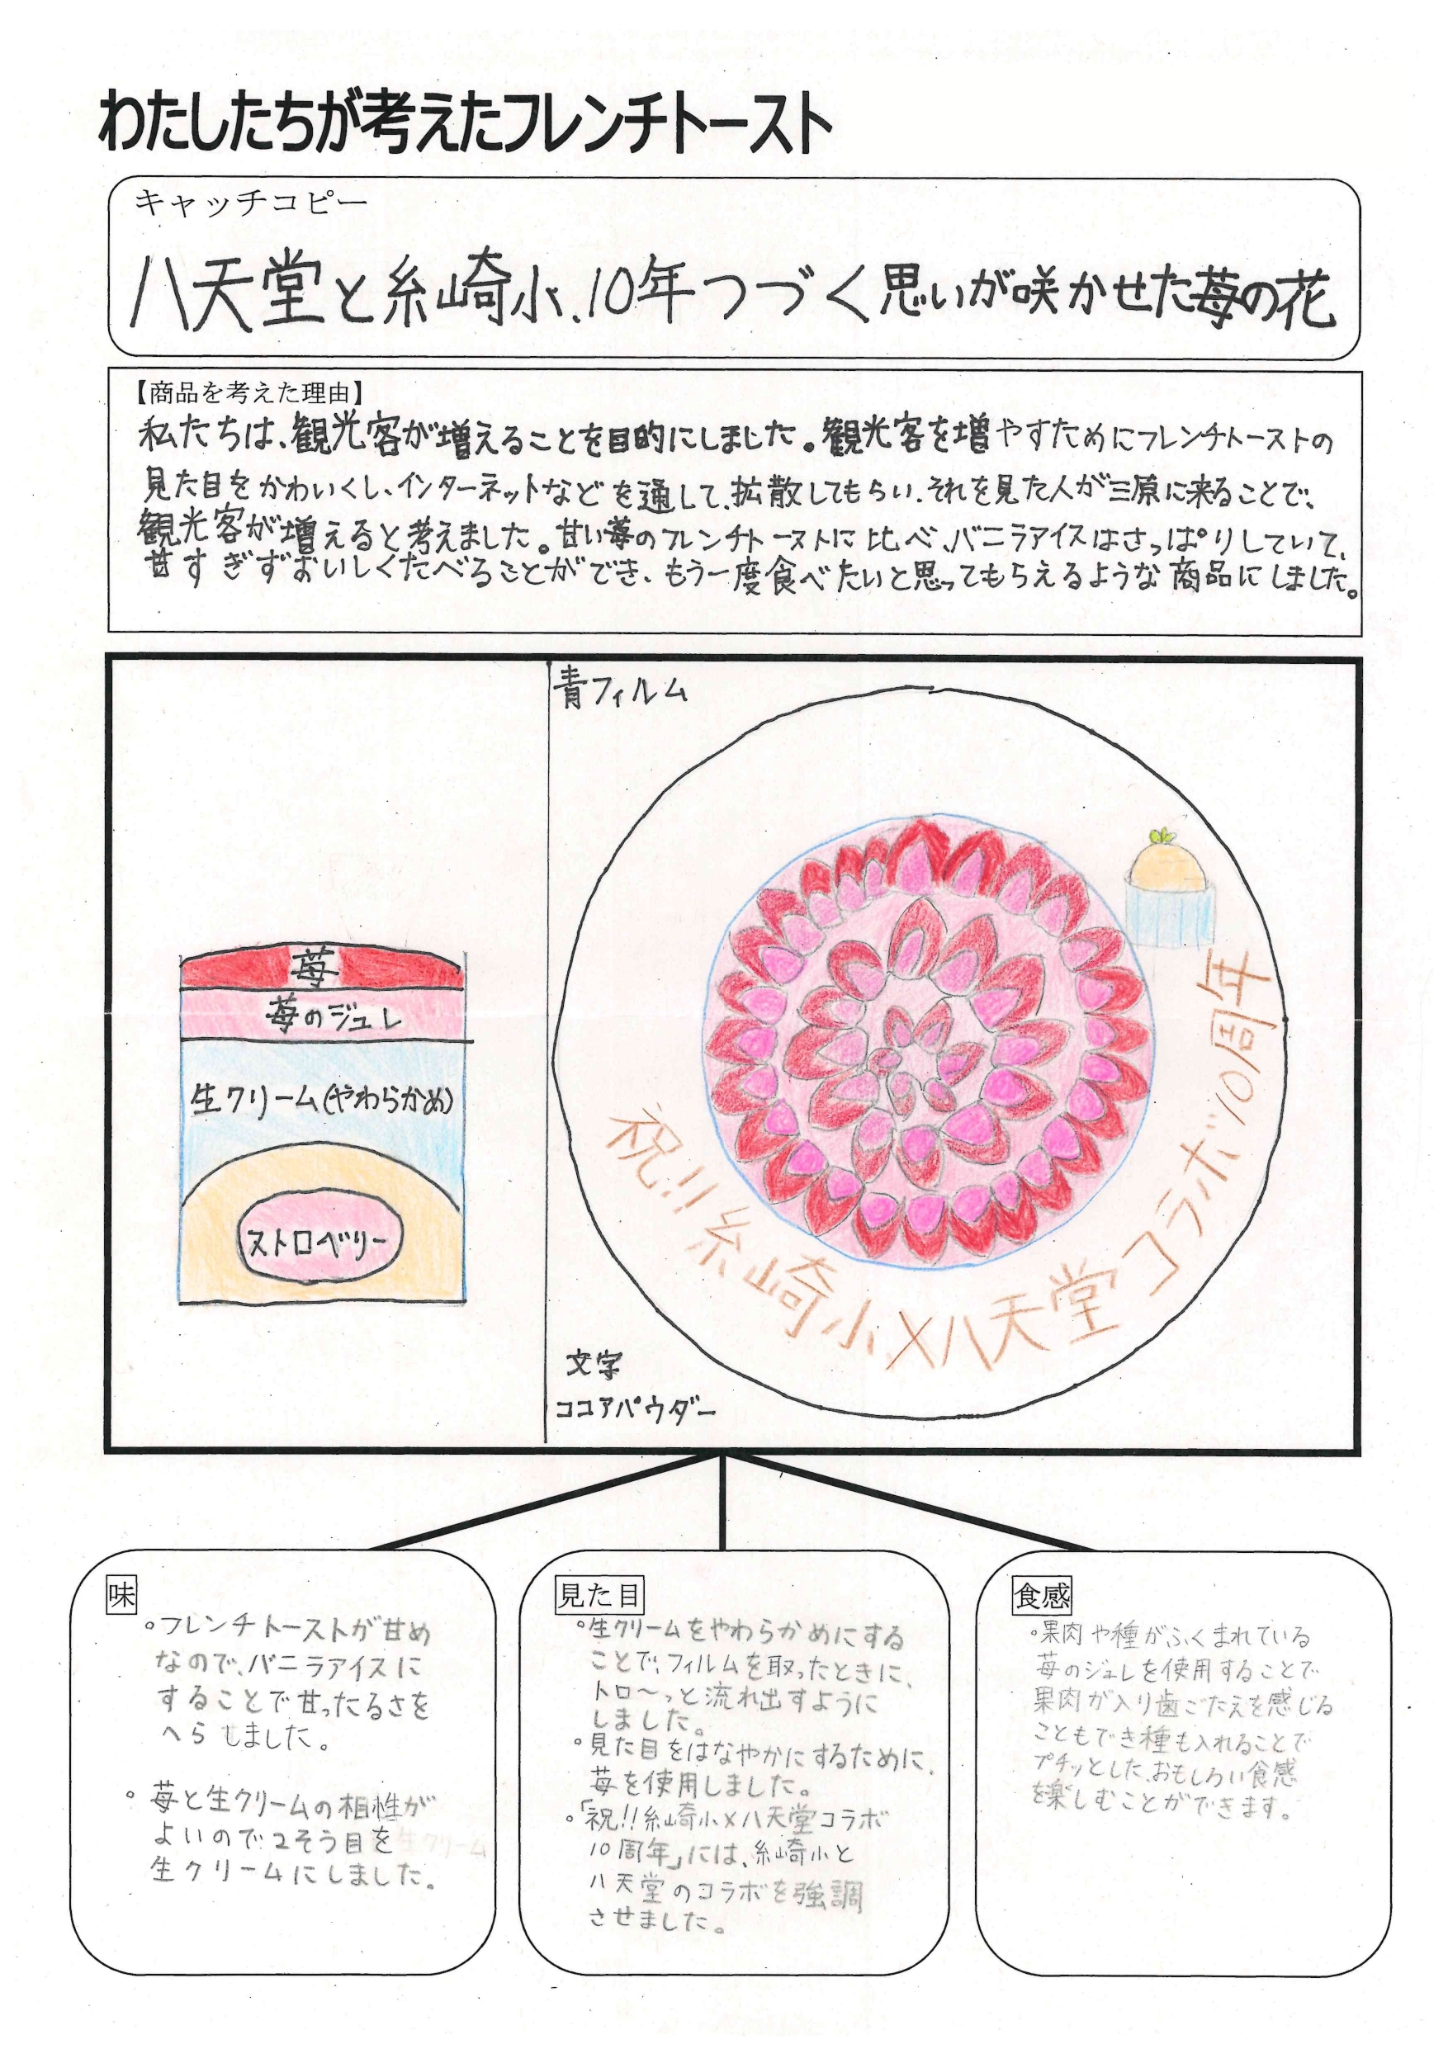 わたしたちが考えたフレンチトースト
キャッチコピー
八天堂と糸崎小、10年つづく思いが咲かせた苺の花
【商品を考えた理由】
私たちは、観光客が増えることを目的にしました。観光客を増やすためにフレンチトーストの
見た目をかわいくし、インターネットなどを通して、拡散してもらい、それを見た人が三原に来ることで、
観光客が増えると考えました。甘い苺のフレンチトーストに比べ、バニラアイスはさっぱりしていて、
甘すぎずおいしくたべることができ、もう一度食べたいと思ってもらえるような商品にしました。
苺
苺のジュレ
生クリーム(やわらかめ)
ストロベリー
青フィルム
祝!!糸崎小×八天堂コラボ10周年
文字
ココアパウダー
味
。フレンチトーストが甘め
なので、バニラアイスに
することで甘ったるさを
へらしました。
。苺と生クリームの相性が
よいので2そう目を
生クリームにしました。
見た目
。生クリームをやわらかめにする
ことで、フィルムを取ったときに、
トロ〜っと流れ出すように
しました。
。見た目をはなやかにするために、
苺を使用しました。
。「祝!!糸崎小×八天堂コラボ
10周年」には、糸崎小と
八天堂のコラボを強調
させました。
食感
。果肉や種がふくまれている
苺のジュレを使用することで
果肉が入り歯ごたえを感じる
こともでき種も入れることで
プチッとした、おもしろい食感
を楽しむことができます。